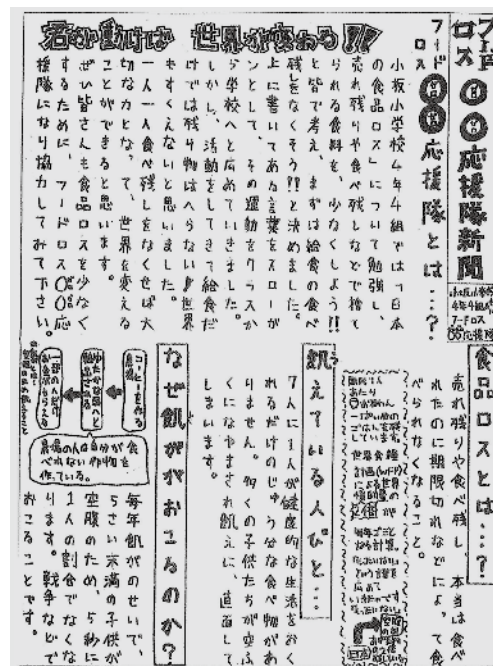 フードロス〇〇応援隊新聞
小坂小学校
4年4組
フードロス
〇〇応援隊
君が動けば 世界が変わる!!
フードロス〇〇応援隊とは…?
小坂小学校4年4組では「日本
の食品ロス」について勉強し、
売れ残りや食べ残しなどで捨て
られる食料を、少なくしよう!!
と皆で考え、まずは給食の食べ
残しをなくそう!!と決めました。
上に書いてある言葉をスローガ
ンとして、その運動をクラスか
ら学校へと広めていきました。
しかし、活動をしてきて給食だ
けでは残り物はへらない!!世界
もすくえないと思いました。
一人一人食べ残しをなくせば大
切な力となって、世界を変える
ことができると思います。
ぜひ皆さんも食品ロスを少なく
するために、フードロス〇〇応
援隊になり協力してみて下さい。
食品ロスとは…?
売れ残りや食べ残し、本当は食べら
れたのに期限切れなどによって食
べられなくなること。
飢えている人びと…
7人に1人が健康的な生活をおく
れるだけのじゅう分な食べ物があ
りません。多くの子供たちが空ふ
くになやまされ飢えに、直面して
しまいます。
なぜ飢がおこるのか?
コーヒーを作る
農場の人は自分が食
べれない作物を
作っている。
毎年飢がのせいで、
5さい未満の子供が
空腹のため、5秒に
1人の割合でなくな
ります。戦争などで
おこることです。